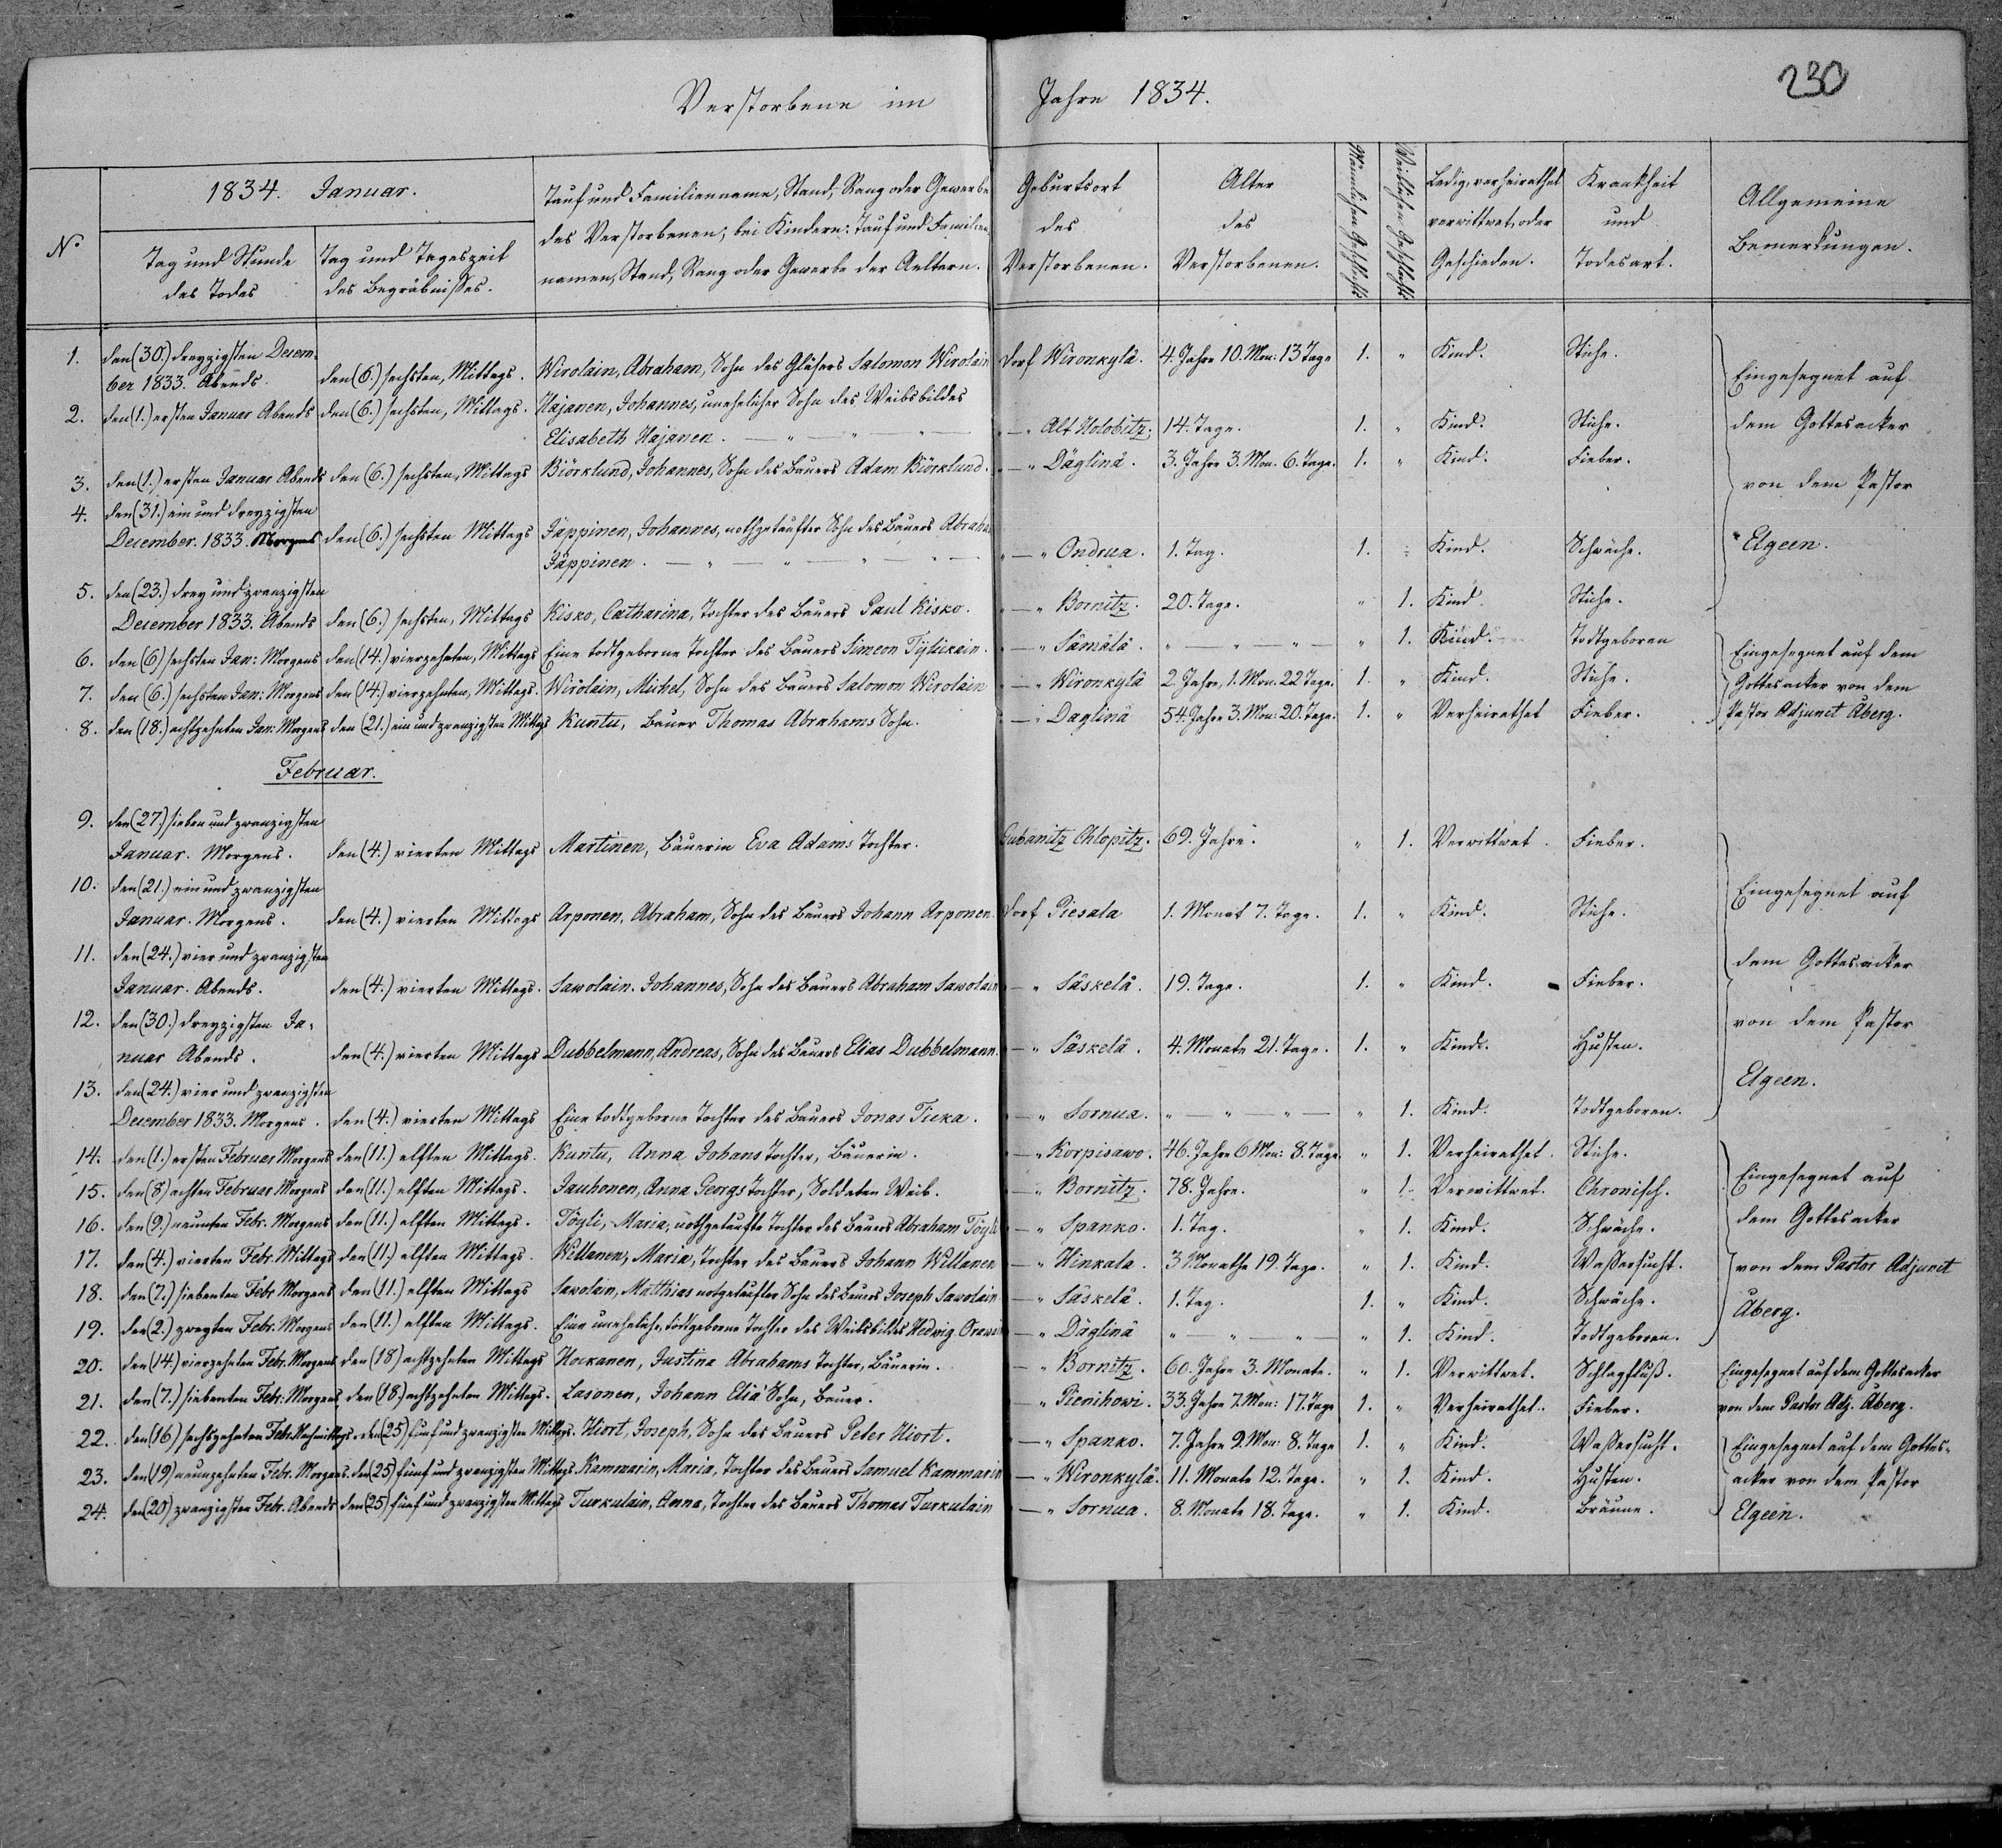 Verstorbene im Jahre 1834.
230
No
1834. Januar.
Tag und Stunde des Todes
Tag und Tageszeit des Begräbnisses.
Tauf und Familienname, Stand, Rang oder Gewerbe
des Verstorbenen; bei Kindern: Tauf und Familien
namen, Stand, Rang oder Gewerbe der Aeltern.
Geburtsort des Verstorbenen.
Alter des Verstorbenen.
Männlichen Geschlechts
Weiblichen Geschlechts
Ledig, verheirathet verwittwet, oder Geschieden.
Krankheit und Todesart.
Allgemeine Bemerkungen.
1. den (30.) dreyzigsten Decem-
ber 1833. Abends. den (6.) sechsten, Mittags. Wirolain, Abraham, Sohn des Gläsers Salomon Wirolain Dorf Wironkylä. 4. Jahre 10. Mon: 13 Tage 1. " Kind. Stiche.
2. den (1.) ersten Januar Abends den (6.) sechsten, Mittags. Hajanen, Johannes, unehelicher Sohn des Weibsbildes
Elisabeth Hajanen. — " — " — " — — " Alt Holobitz. 14. Tage. 1. " Kind. Stiche.
3. den (1.) ersten Januar Abends den (6.) sechsten, Mittags Biörklund, Johannes, Sohn des Bauers Adam Biörklund. — " Däglinä. 3. Jahre 3. Mon. 6. Tage. 1. " Kind. Fieber.
4. den (31.) ein und dreyzigsten
December. 1833. Morgens den (6.) sechsten Mittags Jäppinen, Johannes, nothgetaufter Sohn des Bauers Abraha
Jäppinen. — " — " — " — — " Ondrua. 1. Tag. 1. Kind. Schwäche.
5. den (23.) drey und zwanzigsten
December 1833. Abends den (6.) sechsten, Mittags Kisko, Catharina, Tochter des Bauers Paul Kisko. — " Bornitz. 20. Tage. " 1. Kind. Stiche.
Eingesegnet auf
dem Gottesacker
von dem Pastor
Elgeen.
6. den (6) sechsten Jan: Morgens den (14.) vierzehnten, Mittags Eine todtgeborne Tochter des Bauers Simeon — " Sämälä. " — " — " — " 1. Kind. Todtgeboren
7. den (6.) sechsten Jan: Morgens den (14.) vierzehnten, Mittags. Wirolain, Michel, Sohn des Bauers Salomon Wirolain — " Wironkylä 2. Jahre, 1. Mon. 22 Tage. 1. " Kind. Stiche.
8. den (18.) achtzehnten Jan: Morgens den (21.) ein und zwanzigsten Mittags Kuntu, Bauer Thomas Abrahams Sohn. — " Daglinä 54. Jahre 3. Mon: 20. Tage. 1. " Verheirathet Fieber.
Eingesegnet auf dem
Gottesacker von dem
Pastor Adjunct Åberg.
Februar.
9. den (27.) sieben und zwanzigsten
Januar. Morgens. den (4.) vierten Mittags Martinen, Bäuerin Eva Adams Tochter. Gubanitz Chlopitz. 69. Jahre. " 1. Verwittwet. Fieber.
10. den (21.) ein und zwanzigsten
Januar. Morgens. den (4.) vierten Mittags Arponen, Abraham, Sohn des Bauers Johann Arponen. Dorf Piesala 1. Monat 7. Tage. 1. " Kind. Stiche.
11. den (24.) vier und zwanzigsten
Januar. Abends. den (4.) vierten Mittags. Sawolain. Johannes, Sohn des Bauers Abraham Sawolain — " Säskelä. 19. Tage. 1. " Kind. Fieber.
12. den (30.) dreyzigsten Ja-
nuar Abends. den (4.) vierten Mittags Dubbelmann, Andreas, Sohn des Bauers Elias Dubbelmann. — " Säskelä. 4. Monate 21. Tage. 1. " Kind. Husten.
13. den (24.) vier und zwanzigsten
December 1833. Morgens. den (4.) vierten Mittags Eine todtgeborne Tochter des Bauers Jonas Ticka. — " Sornua. " — " — " — " 1. Kind. Todtgeboren.
Eingesegnet auf
dem Gottesacker
von dem Pastor
Elgeen.
14. den (1.) ersten Februar Morgens den (11.) elften Mittags. Kuntu, Anna Johans Tochter, Bäuerin. — " Korpisawo. 46. Jahre 6 Mon: 8. Tage. " 1. Verheirathet. Stiche.
15. den (8) achten Februar Morgens den (11.) elften Mittags. Jauhonen, Anna Georgs Tochter, Soldaten Weib. — " Bornitz. 78. Jahre. " 1. Verwittwet. Chronisch.
16. den (9.) neunten Febr. Morgens den (11.) elften Mittags. Töyli, Maria, nothgetaufte Tochter des Bauers Abraham Töyli — " Spanko. 1. Tag. " 1. Kind. Schwäche.
17. den (4.) vierten Febr. Mittags den (11.) elften Mittags. Willanen, Maria, Tochter des Bauers Johann Willanen — " Winkala. 3 Monathe 19. Tage. " 1. Kind. Waßersucht.
18. den (7.) siebenten Febr Morgens den (11.) elften Mittags Sawolain, Matthias notgetaufter Sohn des Bauers Joseph Sawolain — " Säskelä. 1. Tag. 1. " Kind. Schwäche.
19. den (2.) zweyten Febr. Morgens den (11.) elften Mittags. Eine uneheliche, todtgeborne Tochter des Weibsbildes Hedwig — " Däglinä " — " — " — " 1. Kind. Todtgeboren.
Eingesegnet auf
dem Gottesacker
von dem Pastor Adjunct
Åberg.
20. den (14.) vierzehnten Febr. Morgens den (18) achtzehnten Mittags Hockanen, Justina Abrahams Tochter, Bäuerin. — " Bornitz. 60. Jahre 3. Monate. " 1. Verwittwet. Schlagfluß. Eingesegnet auf dem Gottesacker
21. den (7.) siebenten Febr: Morgens den (18.) achtzehnten Mittags. Lasonen, Johann Eliä Sohn, Bauer. " Pienihowi. 33. Jahre 7. Mon: 17. Tage 1. " Verheirathet. Fieber. von dem Pastor Adj. Åberg.
22. den (16) sechszehnten Febr. Nachmittags. den (25) fünf und zwanzigsten Mittags. Hiort, Joseph, Sohn des Bauers Peter Hiort. — " Spanko. 7. Jahre 9. Mon: 8. Tage 1. " Kind. Waßersucht.
23. den (19) neunzehnten Febr. Morgens. den (25) fünf und zwanzigsten Mittags. Kammarin, Maria, Tochter des Bauers Samuel Kammarin — " Wironkylä. 11. Monate 12. Tage. " 1. Kind. Husten.
24. den (20) zwanzigsten Febr. Abends den (25) fünf und zwanzigsten Mittags Turkulain, Anna, Tochter des Bauers Thomas Turkulain — " Sornua. 8. Monate 18. Tage. " 1. Kind. Bräune.
Eingesegnet auf dem Gottes-
acker von dem Pastor
Elgeen.